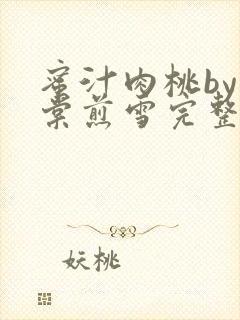 蜜汁肉桃by
棠煎雪完整
妖桃